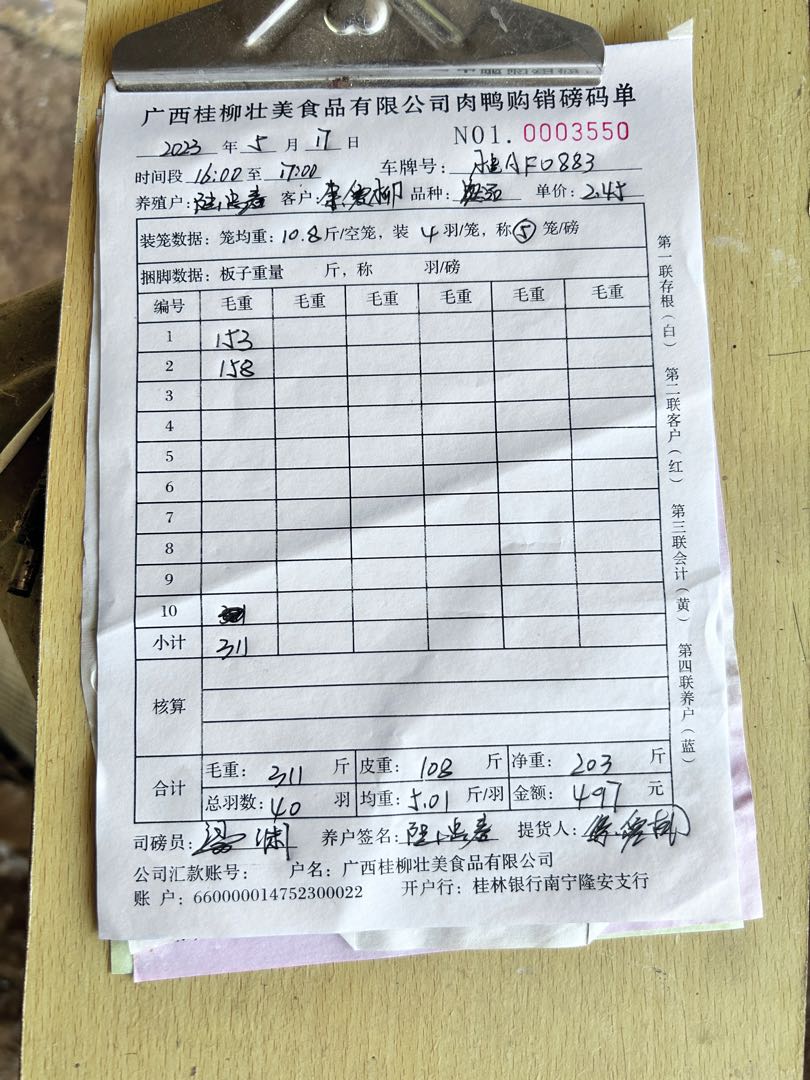 广西桂柳壮美食品有限公司肉鸭购销磅码单
2023 年 5 月 17 日 NO1. 0003550
时间段 16:00 至 17:00 车牌号: 桂AF0883
养殖户: 客户: 品种: 单价: 2.45
装笼数据: 笼均重: 10.8 斤/空笼, 装 4 羽/笼, 称 5 笼/磅
捆脚数据: 板子重量 斤, 称 羽/磅
编号 毛重 毛重 毛重 毛重 毛重 毛重
1 153
2 158
3
4
5
6
7
8
9
10
小计 311
核算
合计 毛重: 311 斤 皮重: 108 斤 净重: 203 斤
总羽数: 40 羽 均重: 5.01 斤/羽 金额: 497 元
司磅员: 养户签名: 提货人:
公司汇款账号: 户名: 广西桂柳壮美食品有限公司
账 户: 660000014752300022 开户行: 桂林银行南宁隆安支行
第一联存根(白) 第二联客户(红) 第三联会计(黄) 第四联养户(蓝)